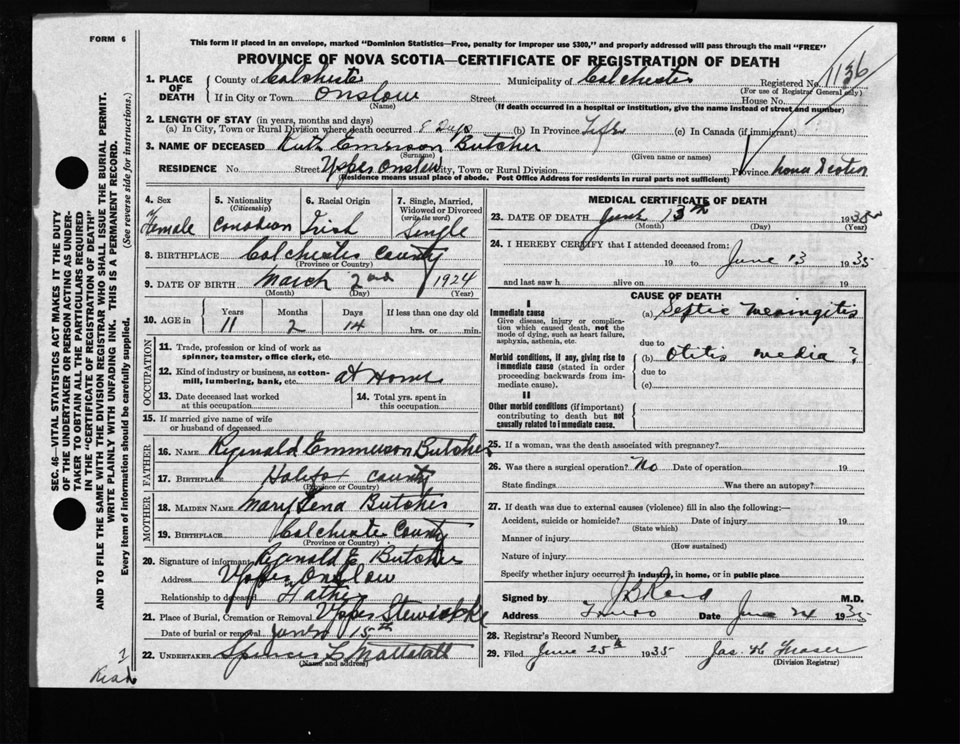 FORM 6
This form if placed in an envelope, marked "Dominion Statistics—Free, penalty for improper use $300," and properly addressed will pass through the mail "FREE"
PROVINCE OF NOVA SCOTIA—CERTIFICATE OF REGISTRATION OF DEATH
1136
1. PLACE OF DEATH County of Colchester Municipality of Colchester Registered No.
(For use of Registrar General only)
If in City or Town Onslow Street House No.
(Name) (If death occurred in a hospital or institution, give the name instead of street and number)
2. LENGTH OF STAY (in years, months and days)
(a) In City, Town or Rural Division where death occurred 8 Days (b) In Province Life (c) In Canada (if immigrant)
3. NAME OF DECEASED Ruth Emerson Butcher
(Surname) (Given name or names)
RESIDENCE No Street Upper Onslow City, Town or Rural Division Province Nova Scotia
(Residence means usual place of abode. Post Office Address for residents in rural parts not sufficient)
4. Sex Female
5. Nationality (Citizenship) Canadian
6. Racial Origin Irish
7. Single, Married, Widowed or Divorced (write the word) Single
8. BIRTHPLACE Colchester County
(Province or Country)
9. DATE OF BIRTH March 2nd 1924
(Month) (Day) (Year)
10. AGE in Years 11 Months 2 Days 14 If less than one day old hrs. or min.
OCCUPATION
11. Trade, profession or kind of work as spinner, teamster, office clerk, etc.
12. Kind of industry or business, as cotton-mill, lumbering, bank, etc. At Home
13. Date deceased last worked at this occupation
14. Total yrs. spent in this occupation.
15. If married give name of wife or husband of deceased
FATHER
16. NAME Reginald Emmerson Butcher
17. BIRTHPLACE Halifax County
(Province or Country)
MOTHER
18. MAIDEN NAME Mary Lena Butcher
19. BIRTHPLACE Colchester County
(Province or Country)
20. Signature of informant Reginald E. Butcher
Address Upper Onslow
Relationship to deceased Father
21. Place of Burial, Cremation or Removal Upper Stewiacke
Date of burial or removal June 15th
22. UNDERTAKER
(Name and address)
MEDICAL CERTIFICATE OF DEATH
23. DATE OF DEATH June 13th 1935
(Month) (Day) (Year)
24. I HEREBY CERTIFY that I attended deceased from:
19 to June 13 1935
and last saw h alive on 19
CAUSE OF DEATH
I
Immediate cause
Give disease, injury or complication which caused death, not the mode of dying, such as heart failure, asphyxia, asthenia, etc.
(a) Septic Meningitis
due to
Morbid conditions, if any, giving rise to immediate cause (stated in order proceeding backwards from immediate cause).
(b) Otitis media ?
due to
(c)
II
Other morbid conditions (if important) contributing to death but not causally related to immediate cause.
25. If a woman, was the death associated with pregnancy?
26. Was there a surgical operation? No Date of operation 19
State findings Was there an autopsy?
27. If death was due to external causes (violence) fill in also the following:—
Accident, suicide or homicide? Date of injury 19
(State which)
Manner of injury
(How sustained)
Nature of injury
Specify whether injury occurred in industry, in home, or in public place
Signed by J B Reid M.D.
Address Truro Date June 24 1935
28. Registrar's Record Number
29. Filed June 25th 1935 Jas. K Fraser
(Division Registrar)
SEC. 46—VITAL STATISTICS ACT MAKES IT THE DUTY
OF THE UNDERTAKER OR PERSON ACTING AS UNDERTAKER TO OBTAIN ALL THE PARTICULARS REQUIRED
IN THE "CERTIFICATE OF REGISTRATION OF DEATH"
AND TO FILE THE SAME WITH THE DIVISION REGISTRAR WHO SHALL ISSUE THE BURIAL PERMIT.
WRITE PLAINLY WITH UNFADING INK. THIS IS A PERMANENT RECORD.
Every item of information should be carefully supplied. (See reverse side for instructions.)